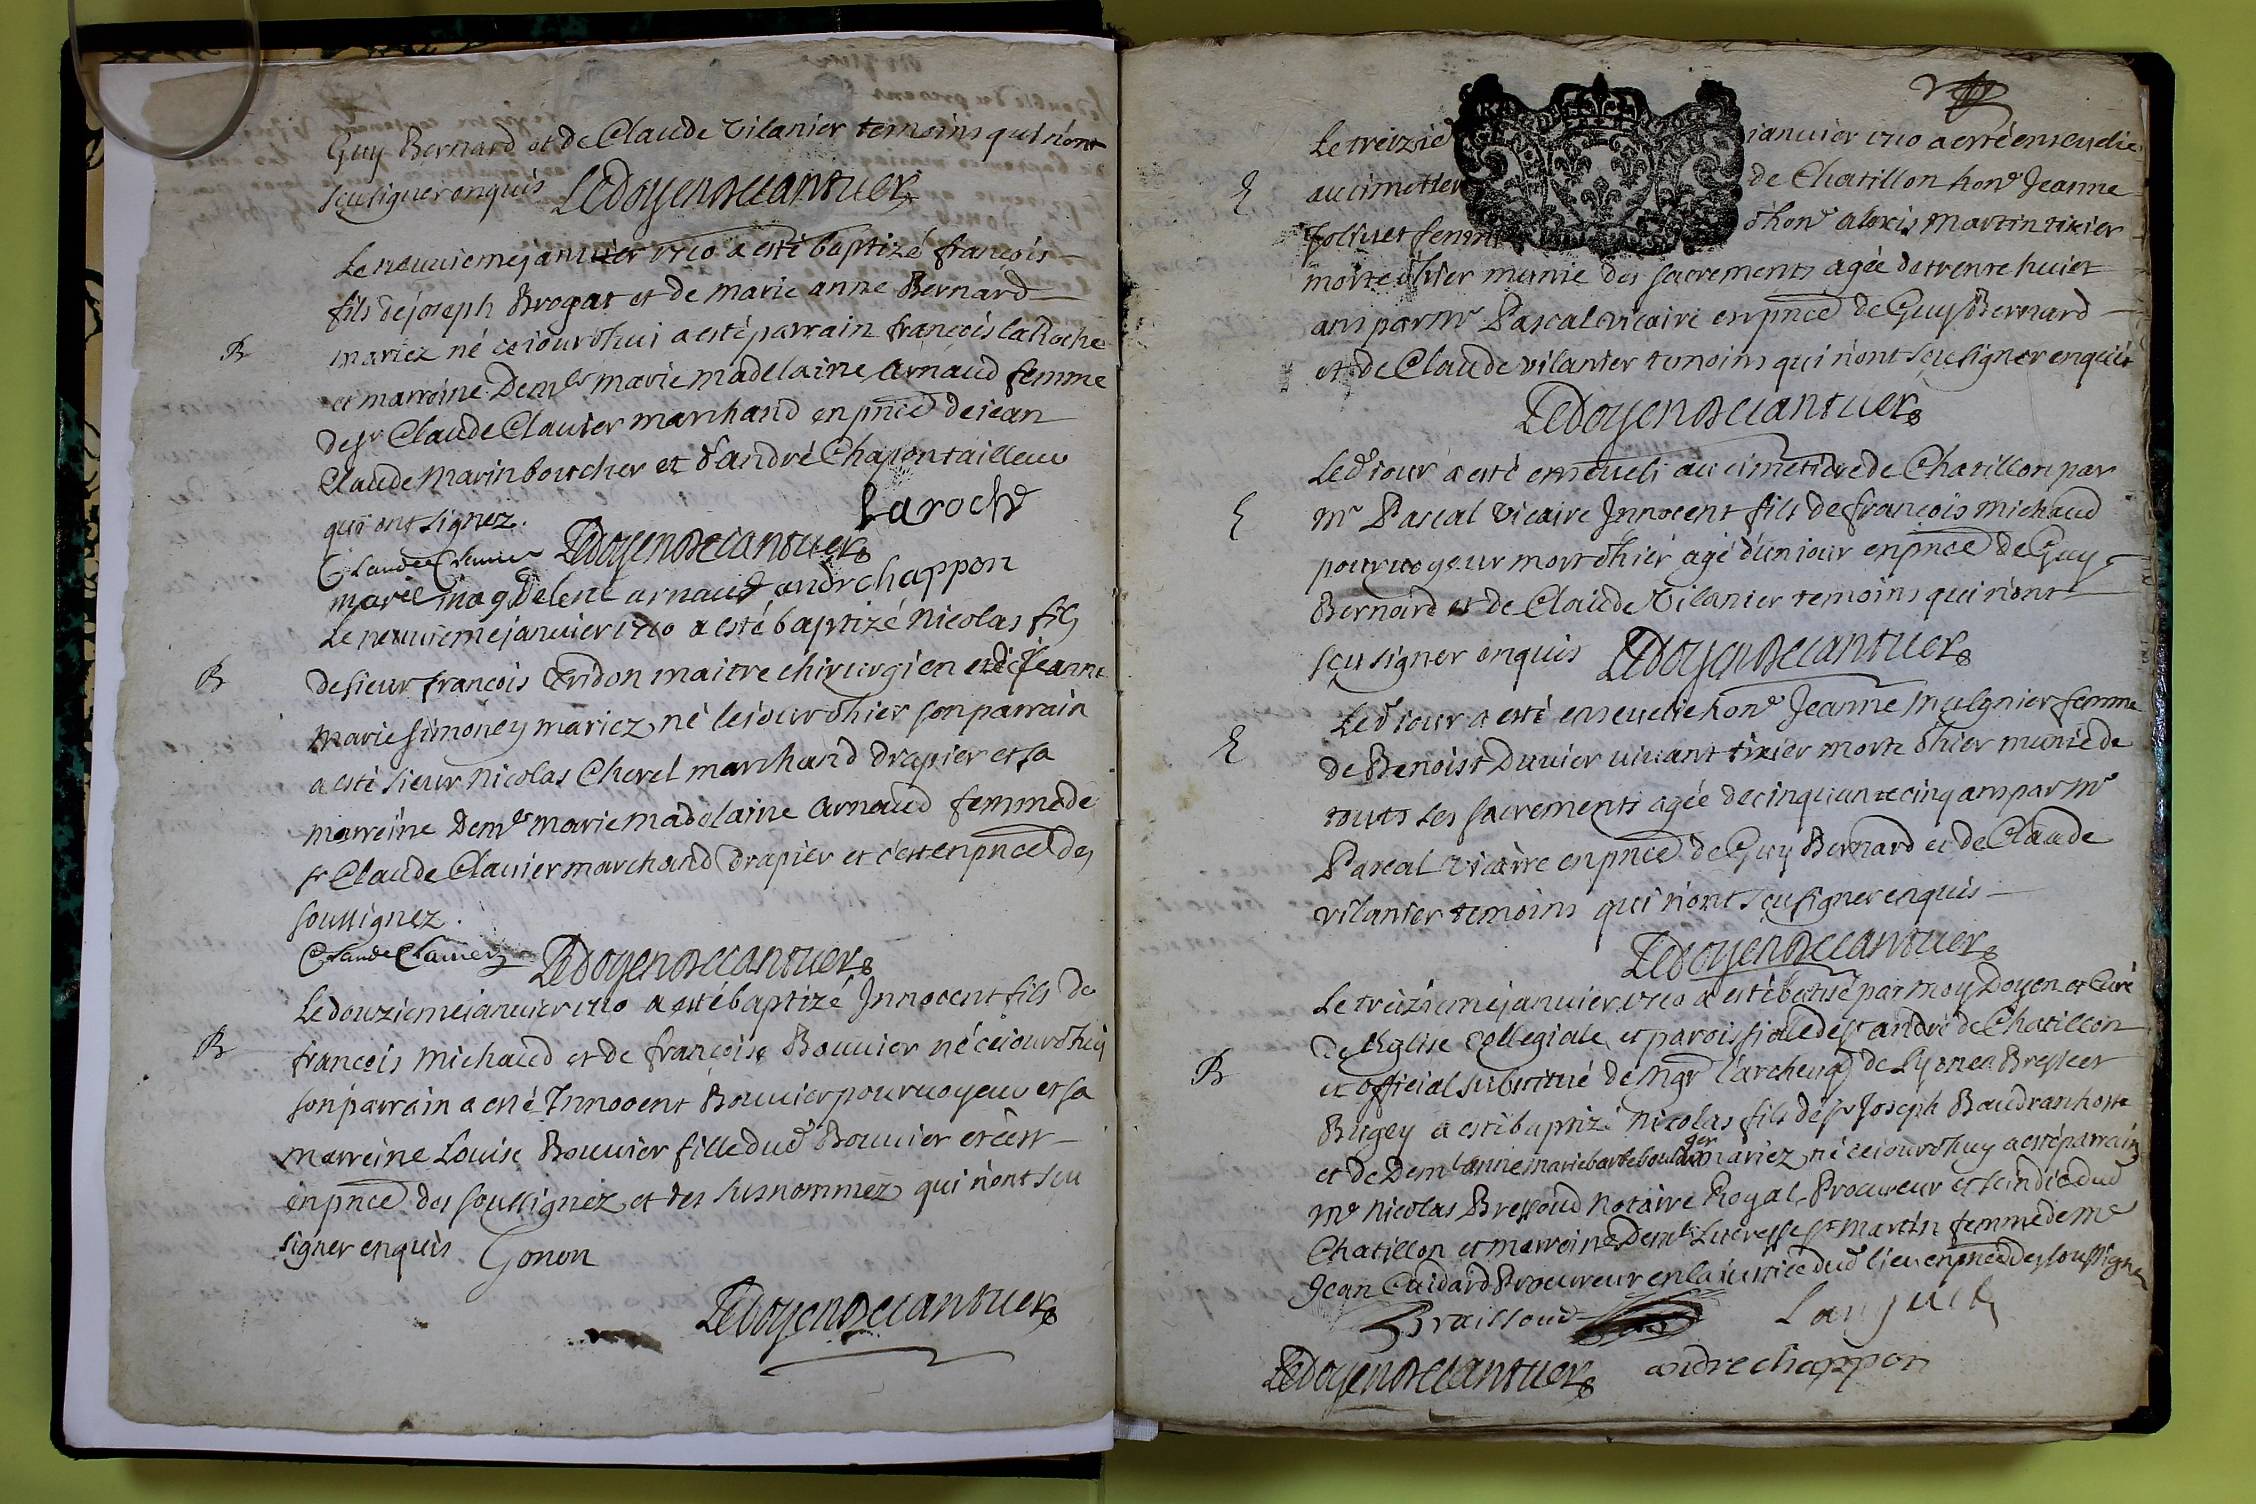 Guy Bernard et de Claude Vilanier temoins qui n'ont
sçu signer enquis Ledoyen Decantuer
Le neuuieme januier 1710 a esté baptizé françois
fils de joseph Brogat et de Marie anne Bernard
B mariez né ce iourdhui a esté parrain françois laRoche
et marreine Demle marie madelaine Arnaud femme
de sr Claude Clauier marchand en pnce de iean
Claude Marin boucher et d'andré Chapon tailleur
qui ont signez. Laroche
Claude Clauier Ledoyen Decantuer
marie magdelene arnaud andrchappon
Le neuuieme januier 1710 a esté baptizé Nicolas fils
B de sieur françois Tridon maitre chirurgien et de Jeanne
Marie Simoney mariez né le iour dhier son parrain
a esté sieur Nicolas Cherel marchand Drapier et sa
marreine Demle marie madelaine Arnaud femme de
sr Claude Clauier marchand Drapier et c'est en pnce des
soussignez.
Claude Clauier Ledoyen Decantuer
Le douzieme ianuier 1710 a esté baptizé Innocent fils de
B françois Michaud et de françoise Bouuier né ce iourdhuy
son parrain a esté Innocent Bouuier pouruoyeur et sa
marreine Louise Bouuier fille dud Bouuier et c'est
en pnce des soussignez et des susnommez qui n'ont sçu
signer enquis Gonon
Ledoyen Decantuer
2
Le treizie januier 1710 a esté enseuelie
E au cimetier de Chatillon hone Jeanne
folliuet femme d'hone alexis Martin tixier
morte dhier munie des sacrements agée de trente huict
ans par mr Pascal vicaire en pnce de Guy Bernard
et de Claude vilanier temoins qui n'ont sçu signer enquis
Ledoyen Decantuer
Led iour a esté enseueli au cimetiere de Chatillon par
E mr Pascal Vicaire Innocent fils de françois Michaud
pouruoyeur mort dhier agé d'un iour en pnce de Guy
Bernard et de Claude Vilanier temoins qui n'ont
sçu signer enquis Ledoyen Decantuer
Led iour a esté enseuelie hone Jeanne Mulgnier femme
E de Benoist Duuier viuant tixier morte dhier munie de
touts les sacrements agée de cinquante cinq ans par mr
Pascal vicaire en pnce de Guy Bernard et de Claude
vilanier temoins qui n'ont sçu signer enquis
Ledoyen Decantuer
Le treizieme januier 1710 a esté batisé par moy Doyen et Curé
de l'Eglise Collegiale et paroissiale de st andré de Chatillon
B et official substitué de Mgr l'archeuq de Lyon en Bresse et
Bugey a esté baptizé Nicolas fils de sr Joseph Baudran hoste
et de Demle anne marie barbe boulanger mariez né ce iourdhuy a esté parrain
Me Nicolas Bressoud Notaire Royal Procureur et scindic dud
Chatillon et marreine Demle Lucresse st Martin femme de me
Jean Cuidard Procureur en la iustice dud lieu en pnce des soussignez
Braissoud
Ledoyen Decantuer andre chappon